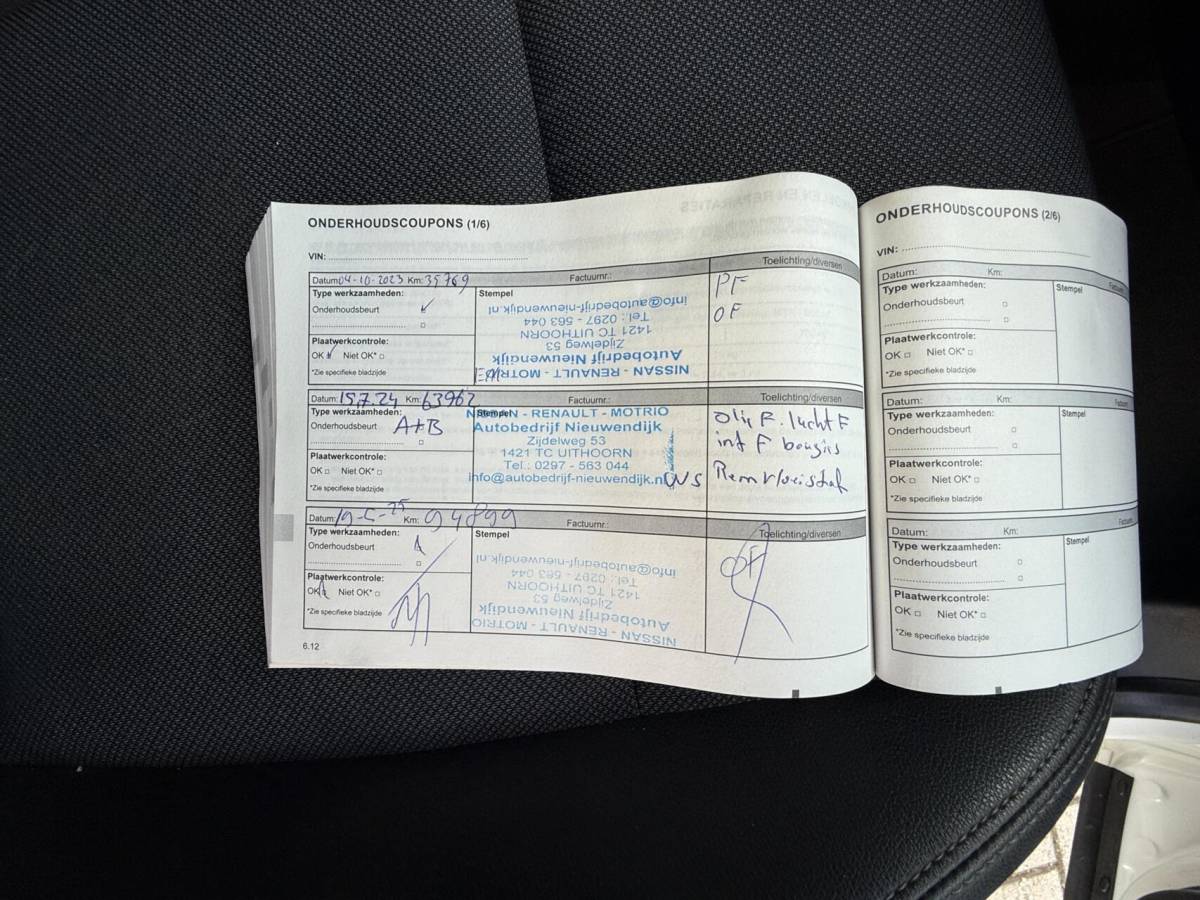 ONDERHOUDSCOUPONS (1/6)
VIN:
Datum: 04-10-2023 Km: 35769 Factuurnr.: Toelichting/diversen
Type werkzaamheden:
Onderhoudsbeurt
Stempel
info@autobedrijf-nieuwendijk.nl
Tel.: 0297 - 563 044
1421 TC UITHOORN
Zijdelweg 53
Autobedrijf Nieuwendijk
NISSAN - RENAULT - MOTRIO
PF
OF
Plaatwerkcontrole:
OK Niet OK*
*Zie specifieke bladzijde
Datum: 15.7.24 Km: 63962 Factuurnr.: Toelichting/diversen
Type werkzaamheden:
Onderhoudsbeurt A+B
Stempel
NISSAN - RENAULT - MOTRIO
Autobedrijf Nieuwendijk
Zijdelweg 53
1421 TC UITHOORN
Tel.: 0297 - 563 044
info@autobedrijf-nieuwendijk.nl
olie F. lucht F
int F bougies
Remvloeistof
Plaatwerkcontrole:
OK Niet OK*
*Zie specifieke bladzijde
Datum: Km: 94899 Factuurnr.: Toelichting/diversen
Type werkzaamheden:
Onderhoudsbeurt
Stempel
info@autobedrijf-nieuwendijk.nl
Tel.: 0297 - 563 044
1421 TC UITHOORN
Zijdelweg 53
Autobedrijf Nieuwendijk
NISSAN - RENAULT - MOTRIO
OF
Plaatwerkcontrole:
OK Niet OK*
*Zie specifieke bladzijde
6.12
ONDERHOUDSCOUPONS (2/6)
VIN:
Datum: Km:
Type werkzaamheden:
Stempel
Onderhoudsbeurt
Plaatwerkcontrole:
OK Niet OK*
*Zie specifieke bladzijde
Datum: Km:
Type werkzaamheden:
Stempel
Onderhoudsbeurt
Plaatwerkcontrole:
OK Niet OK*
*Zie specifieke bladzijde
Datum: Km:
Type werkzaamheden:
Stempel
Onderhoudsbeurt
Plaatwerkcontrole:
OK Niet OK*
*Zie specifieke bladzijde